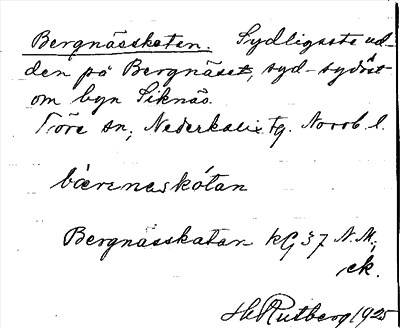 Bergnässkatan. Sydligaste ud-
den på Bergnäset, syd-sydöst
om byn Siknäs.
Töre sn, Nederkalix tg. Norrb. l.
bærcneskótan
Bergnässkatan kG 37 N.M.,
ek.
H. Rutberg 1925